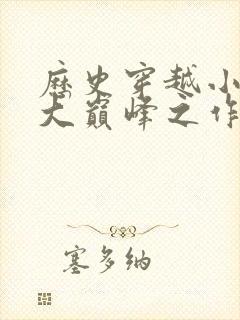 歷史穿越小
大巔峰之作
塞多納